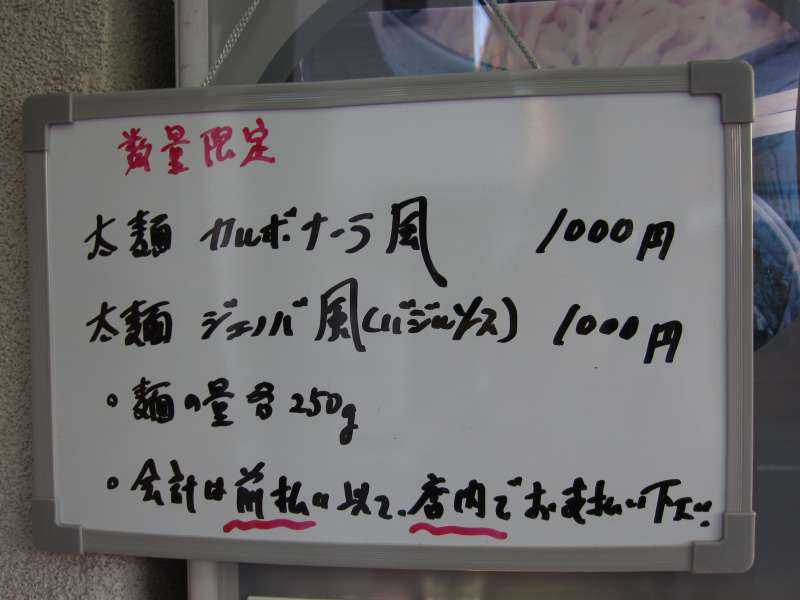 数量限定
太麺 カルボナーラ風 1000円
太麺 ジェノバ風(バジルソース) 1000円
・麺の量各250g
・会計は前払い以て、店内でお支払い下さい